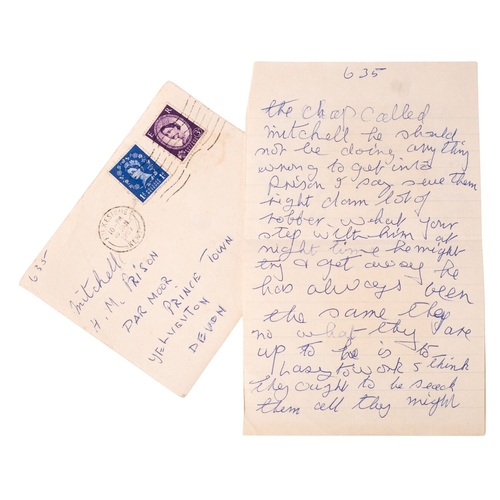 635
Mitchell
H. M. PRISON
DARMOOR
PRINCE TOWN
YELVERTON
DEVON
635
the chap called
mitchell he should
not be doing anything
wrong to get into
prison I say serve them
right dam lot of
robber what your
step with him at
night time he might
try & get away he
has always been
the same they
no what they are
up to he is to
lasey to work I think
they ought to be
them all they might